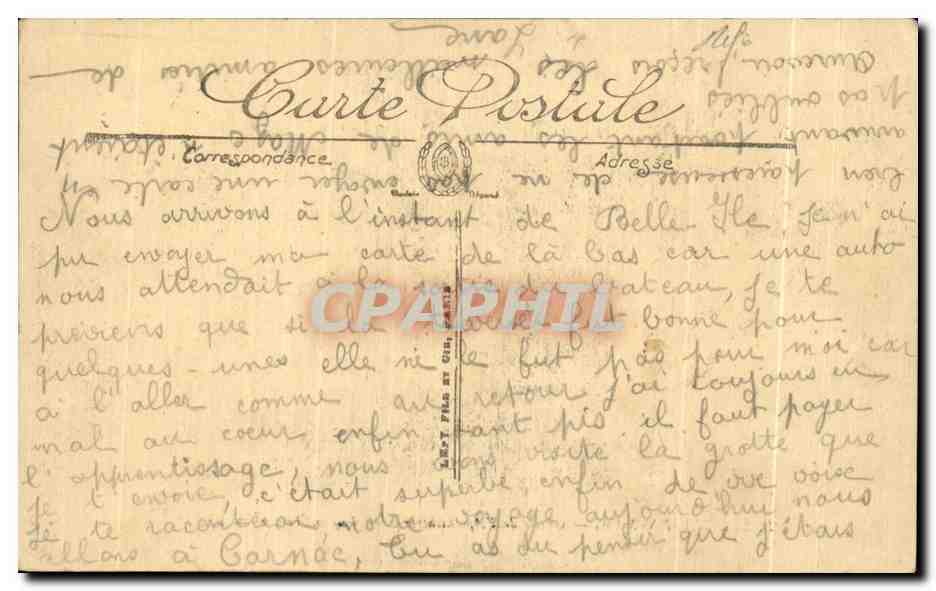 Carte Postale
Correspondance
Adresse
LÉVY FILS ET CIE, PARIS
CPAPHIL
Nous arrivons à l'instant de Belle-Ile Je n'ai
pu envoyer ma carte de là bas car une auto
nous attendait à la sortie du bateau, Je te
préviens que si la fut bonne pour
quelques-unes elle ne le fut pas pour moi car
à l'aller comme au retour j'ai toujours eu
mal au coeur enfin tant pis il faut payer
l'apprentissage, nous avons visité la grotte que
je t'envoie, c'était superbe enfin de vive voix
Je te raconterai notre voyage, aujourd'hui nous
allons à Carnac, Tu as du penser que j'étais
bien paresseuse de ne pas envoyer une carte en
arrivant pourtant les amis de étaient
pas oubliés
Au revoir, reçois les meilleures amitiés de